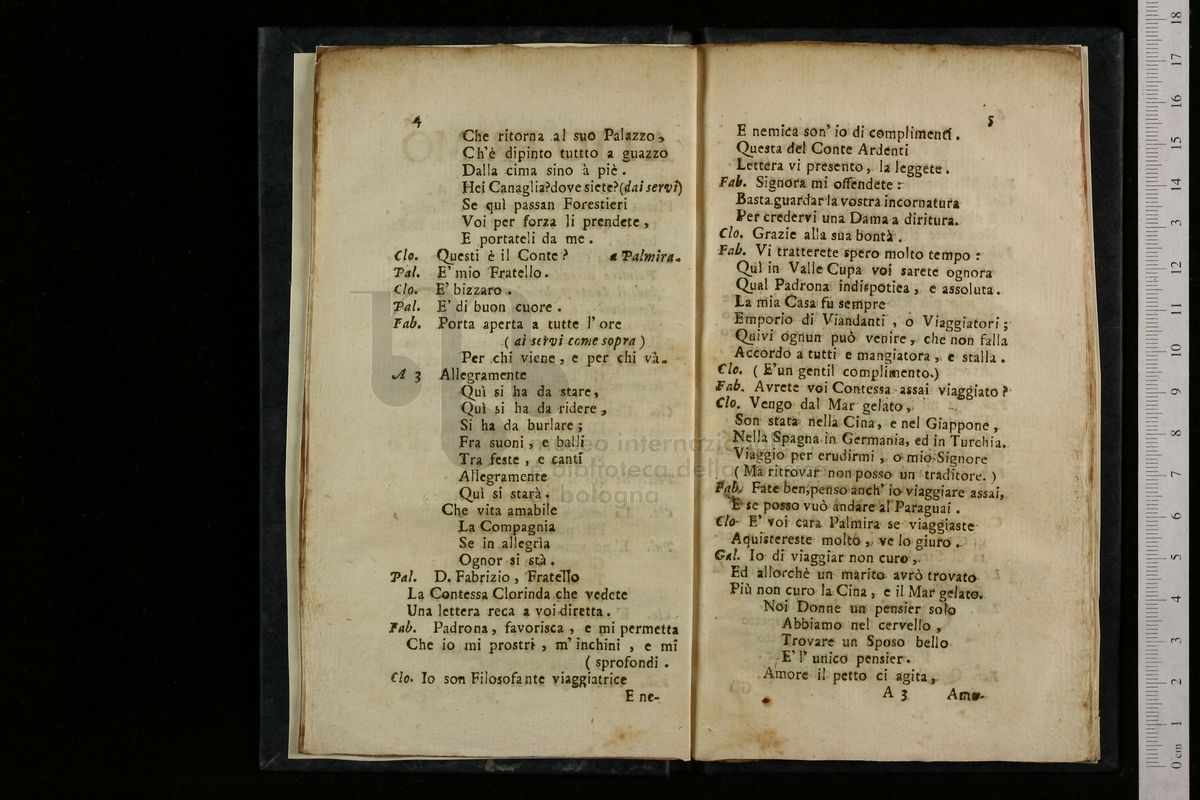 4
Che ritorna al suo Palazzo,
Ch'è dipinto tuttto a guazzo
Dalla cima sino à piè.
Hei Canaglia? dove siete? (dai servi)
Se quì passan Forestieri
Voi per forza li prendete,
E portateli da me.
Clo. Questi è il Conte? a Palmira.
Pal. E' mio Fratello.
Clo. E' bizzaro.
Pal. E' di buon cuore.
Fab. Porta aperta a tutte l'ore
( ai servi come sopra )
Per chi viene, e per chi và.
A 3 Allegramente
Quì si ha da stare,
Quì si ha da ridere,
Si ha da burlare;
Fra suoni, e balli
Tra feste, e canti
Allegramente
Quì si starà.
Che vita amabile
La Compagnia
Se in allegria
Ognor si stà.
Pal. D. Fabrizio, Fratello
La Contessa Clorinda che vedete
Una lettera reca a voi diretta.
Fab. Padrona, favorisca, e mi permetta
Che io mi prostri, m'inchini, e mi
( sprofondi.
Clo. Io son Filosofante viaggiatrice
E ne-
5
E nemica son' io di complimenti.
Questa del Conte Ardenti
Lettera vi presento, la leggete.
Fab. Signora mi offendete:
Basta guardar la vostra incornatura
Per credervi una Dama a diritura.
Clo. Grazie alla sua bontà.
Fab. Vi tratterete spero molto tempo:
Quì in Valle Cupa voi sarete ognora
Qual Padrona indispotica, e assoluta.
La mia Casa fu sempre
Emporio di Viandanti, o Viaggiatori;
Quivi ognun può venire, che non falla
Accordo a tutti e mangiatora, e stalla.
Clo. ( E' un gentil complimento.)
Fab. Avrete voi Contessa assai viaggiato?
Clo. Vengo dal Mar gelato,
Son stata nella Cina, e nel Giappone,
Nella Spagna in Germania, ed in Turchia.
Viaggio per erudirmi, o mio Signore
( Ma ritrovar non posso un traditore. )
Fab. Fate ben, penso anch' io viaggiare assai,
E se posso vuò andare al Paraguai.
Clo E' voi cara Palmira se viaggiaste
Aquistereste molto, ve lo giuro.
Gal. Io di viaggiar non curo,
Ed allorchè un marito avrò trovato
Più non curo la Cina, e il Mar gelato.
Noi Donne un pensier solo
Abbiamo nel cervello,
Trovare un Sposo bello
E' l' unico pensier.
Amore il petto ci agita,
A 3 Amo-
museo internazionale
e biblioteca della
bologna
0 cm 1 2 3 4 5 6 7 8 9 10 11 12 13 14 15 16 17 18